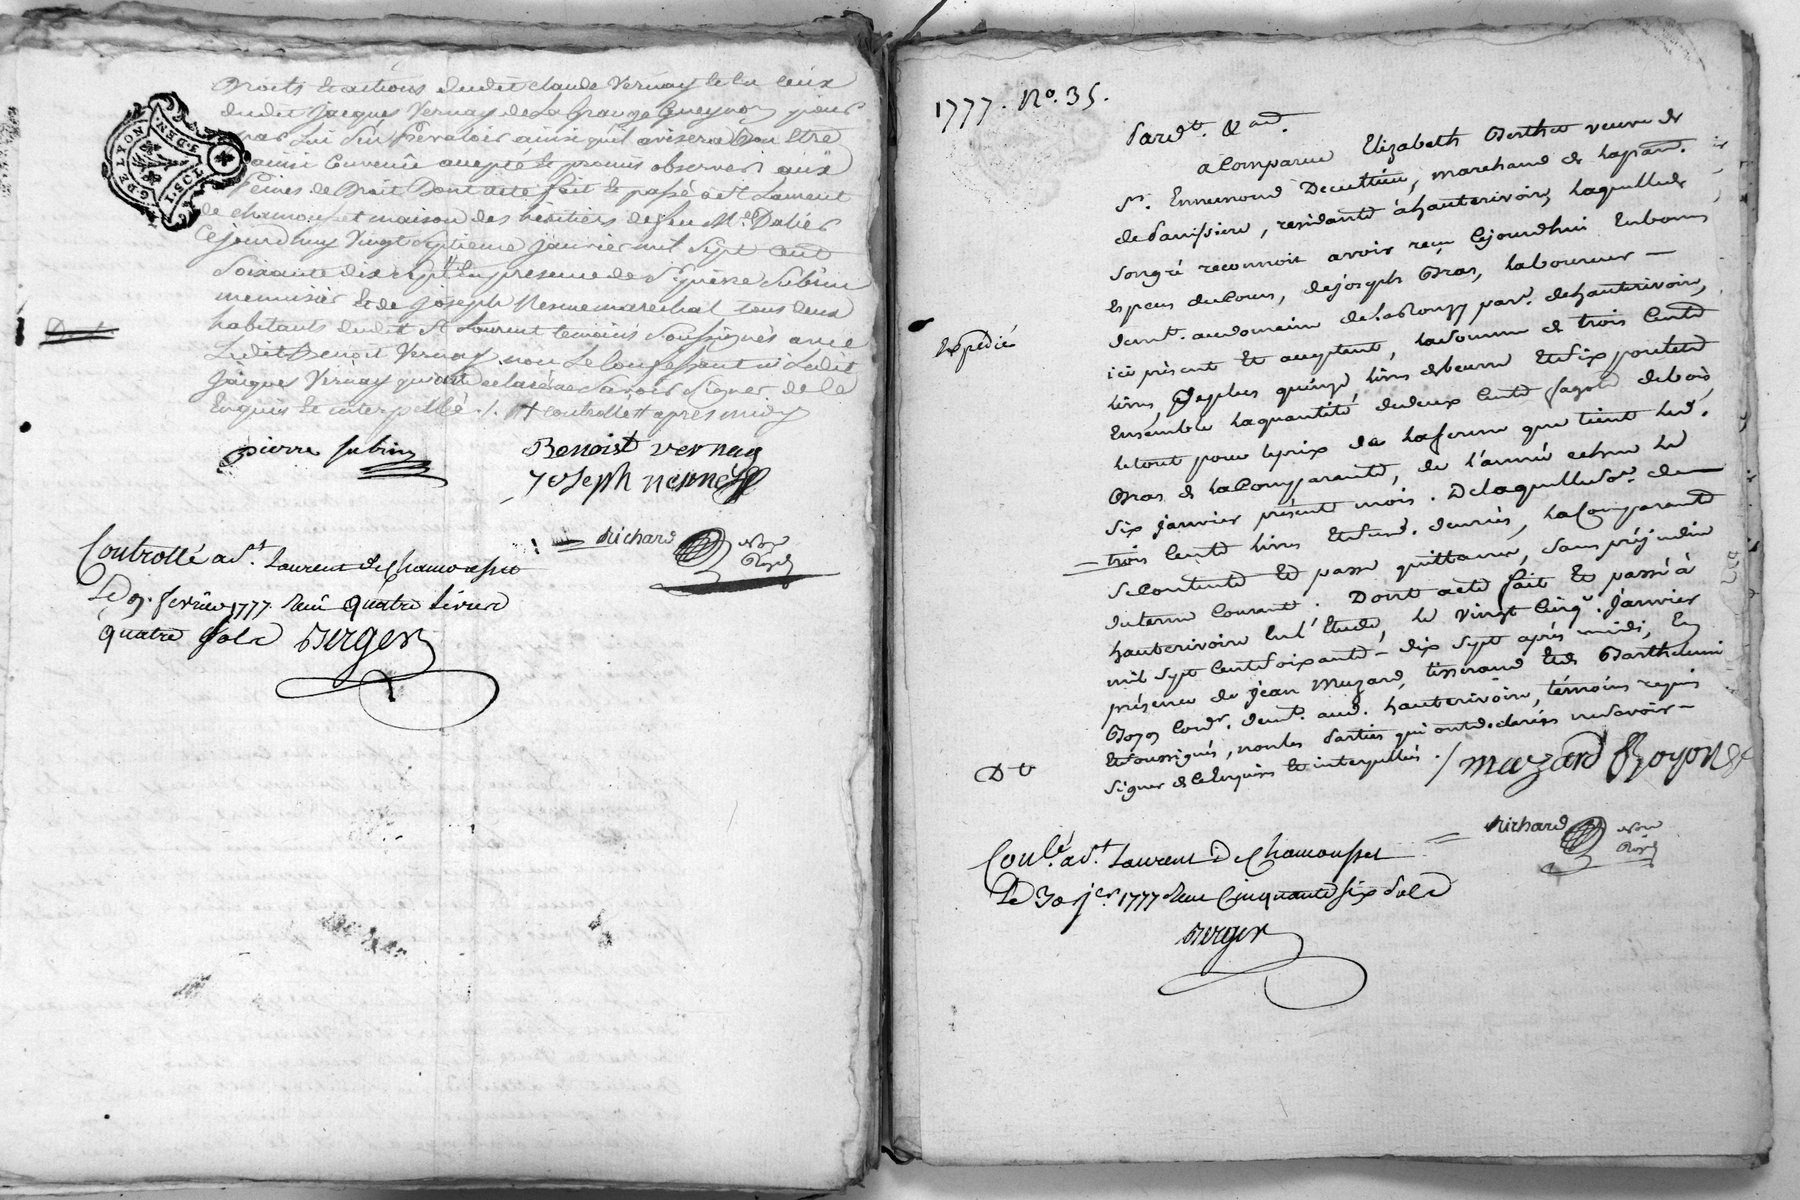 Droits et actions dudit Claude Vernay et en ceux
dudit Jacques Vernay de la Grange pour
par lui s'en prevaloir ainsi qu'il avisera Bon Etre
ainsi Convenu accepté et promis observer aux
Peines de Droit Dont acte fait et passé a St Laurent
de chamousset maison des héritiers de feu Me Dalier
Cejourdhuy Vingt Septieme janvier mil Sept Cent
Soixante dix sept En presence de Sr Pierre Subrin
menuisier et de joseph Nesme marechal tous deux
habitants dudit St Laurent temoins Soussignés avec
Ledit Benoit Vernay non Le Confessant ni Ledit
Jacques Vernay qui ont declaré ne Savoir Signer de Ce
Enquis et interpellé ./. controlle apres midy
pierre subrin
Benoist vernay
joseph nesme
Richard
Nore
Royal
Controllé a St. Laurent de Chamousset
Le 9. fevrier 1777. Reçu Quatre Livres
Quatre Sols Berger
G. DE LYON
1777. No. 35.
Pardt. &ad.
a Comparue Elizabeth Berthet veuve de
Sr. Ennemond Decultieu, marchand de la par.
de Panissiere, residante à hauterivoire, laquelle de
Son gré reconnoit avoir reçu Cejourdhui En bonnes
Especes du Cours, de joseph Bras, laboureur
demt. au domaine de par. de hauterivoire,
Expedié
ici présent et acceptant, la Somme de trois Cents
livres, De plus quinze livres de beurre et Six poulets
Ensemble la quantité de deux Cents fagots de bois,
le tout pour le prix de la ferme que tient led.
Bras de la Comparante, de l'année echue le
Six Janvier présent mois. De laquelle So. de
trois Cents livres et sud. denrées, la Comparante
Se Contente et passe quittance, Sans préjudice
du terme Courant. Dont acte fait et passé à
hauterivoire En l'Etude, le Vingt Cinq. Janvier
mil Sept Cent Soixante - dix Sept après midi, En
présence de Jean Mazard, tisserand et de Barthelemi
Boyon Cord. demt. aud. hauterivoire, témoins requis
et Soussignés, non les Parties qui ont declarées ne Savoir
Signer de Ce Enquises et interpellés ./
Dt
Mazard Boyon
Richard
Nore
Royal
Conlé. a St. Laurent De Chamousset
Le 30 jer. 1777 Reçu Cinquante Six Sols
Berger